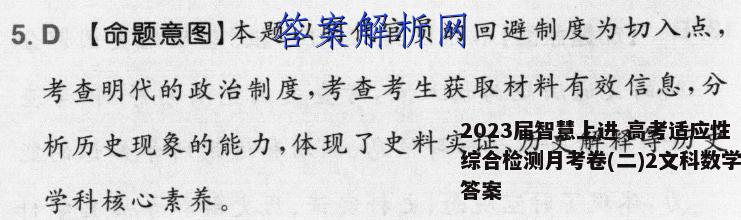 5. D 【命题意图】本题以明代官员的回避制度为切入点，
答案解析网
考查明代的政治制度，考查考生获取材料有效信息，分
析历史现象的能力，体现了史料实证、历史解释等历史
学科核心素养。
2023届智慧上进 高考适应性
综合检测月考卷(二)2文科数学
答案